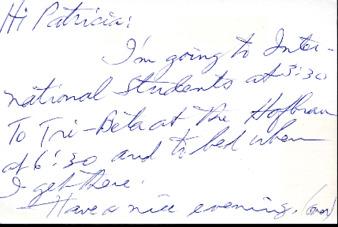 Hi Patricia:
I'm going to Inter-
national Students at 3:30
To Tri-Beta at The Hofbrau
at 6:30 and to bed when
I get there.
Have a nice evening.